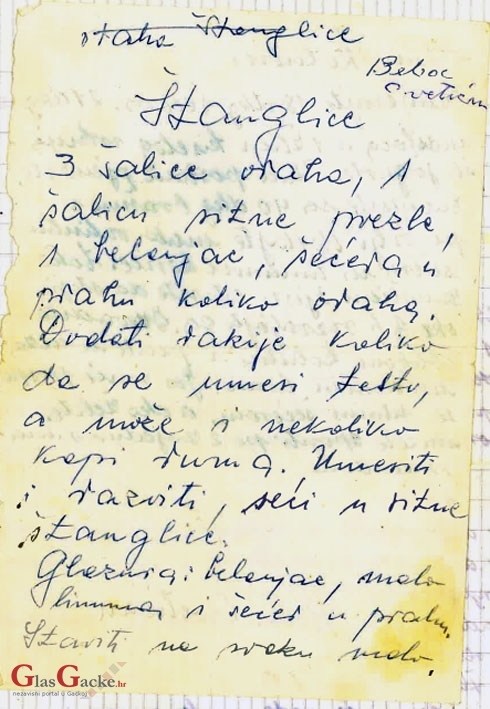 Štanglice
Beboc
Štanglice
3 šalice oraha, 1
šalicu sitne prezle,
1 belanjac, šećera u
prahu koliko oraha.
Dodati rakije koliko
da se umesi testo,
a može i nekoliko
kapi ruma. Umesiti
i razviti, seći u sitne
štanglice.
Glazura: belanjac, malo
limuna i šećer u prahu.
Staviti na svaku malo
GlasGacke.hr
nezavisni portal u Gackoj